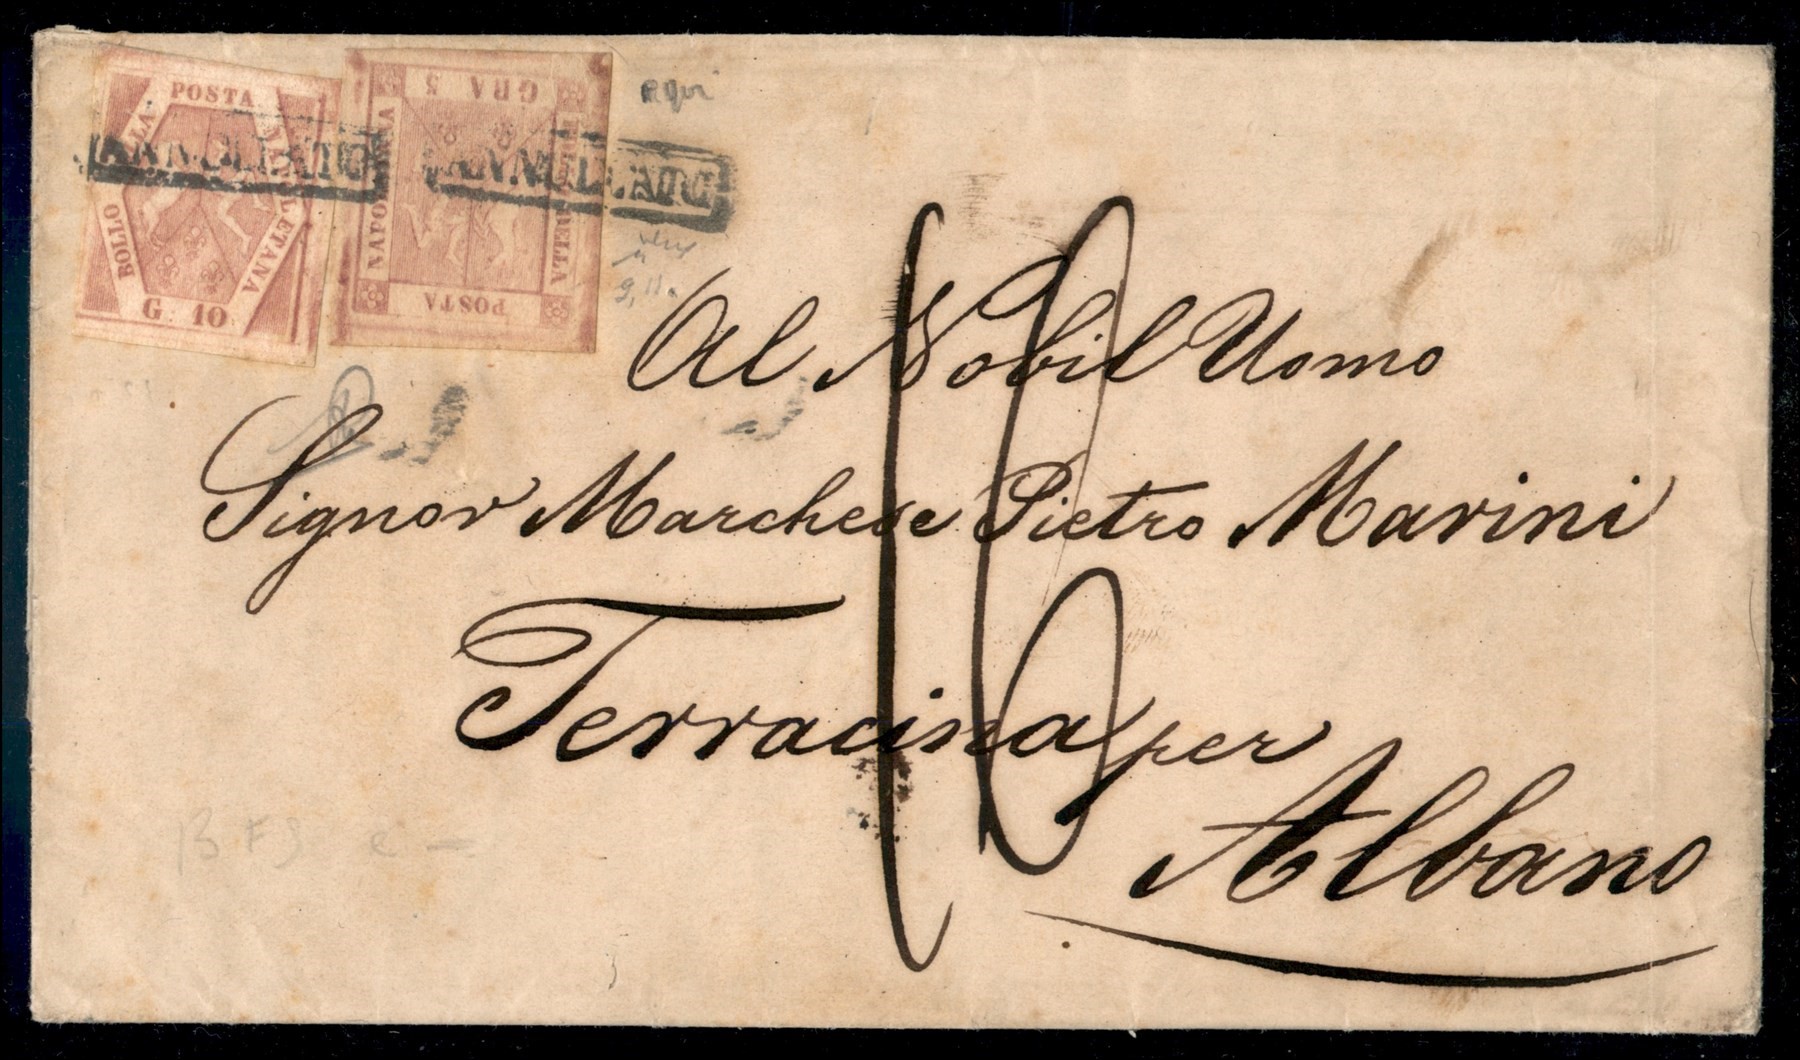 POSTA
NAPOLETANA
BOLLO
DELLA
G. 10
GRA 5
NAPOLETANA
BOLLO DELLA
POSTA
ANNULLATO
ANNULLATO
Al Nobil Uomo
Signor Marchese Pietro Marini
Terracina per
Albano
16